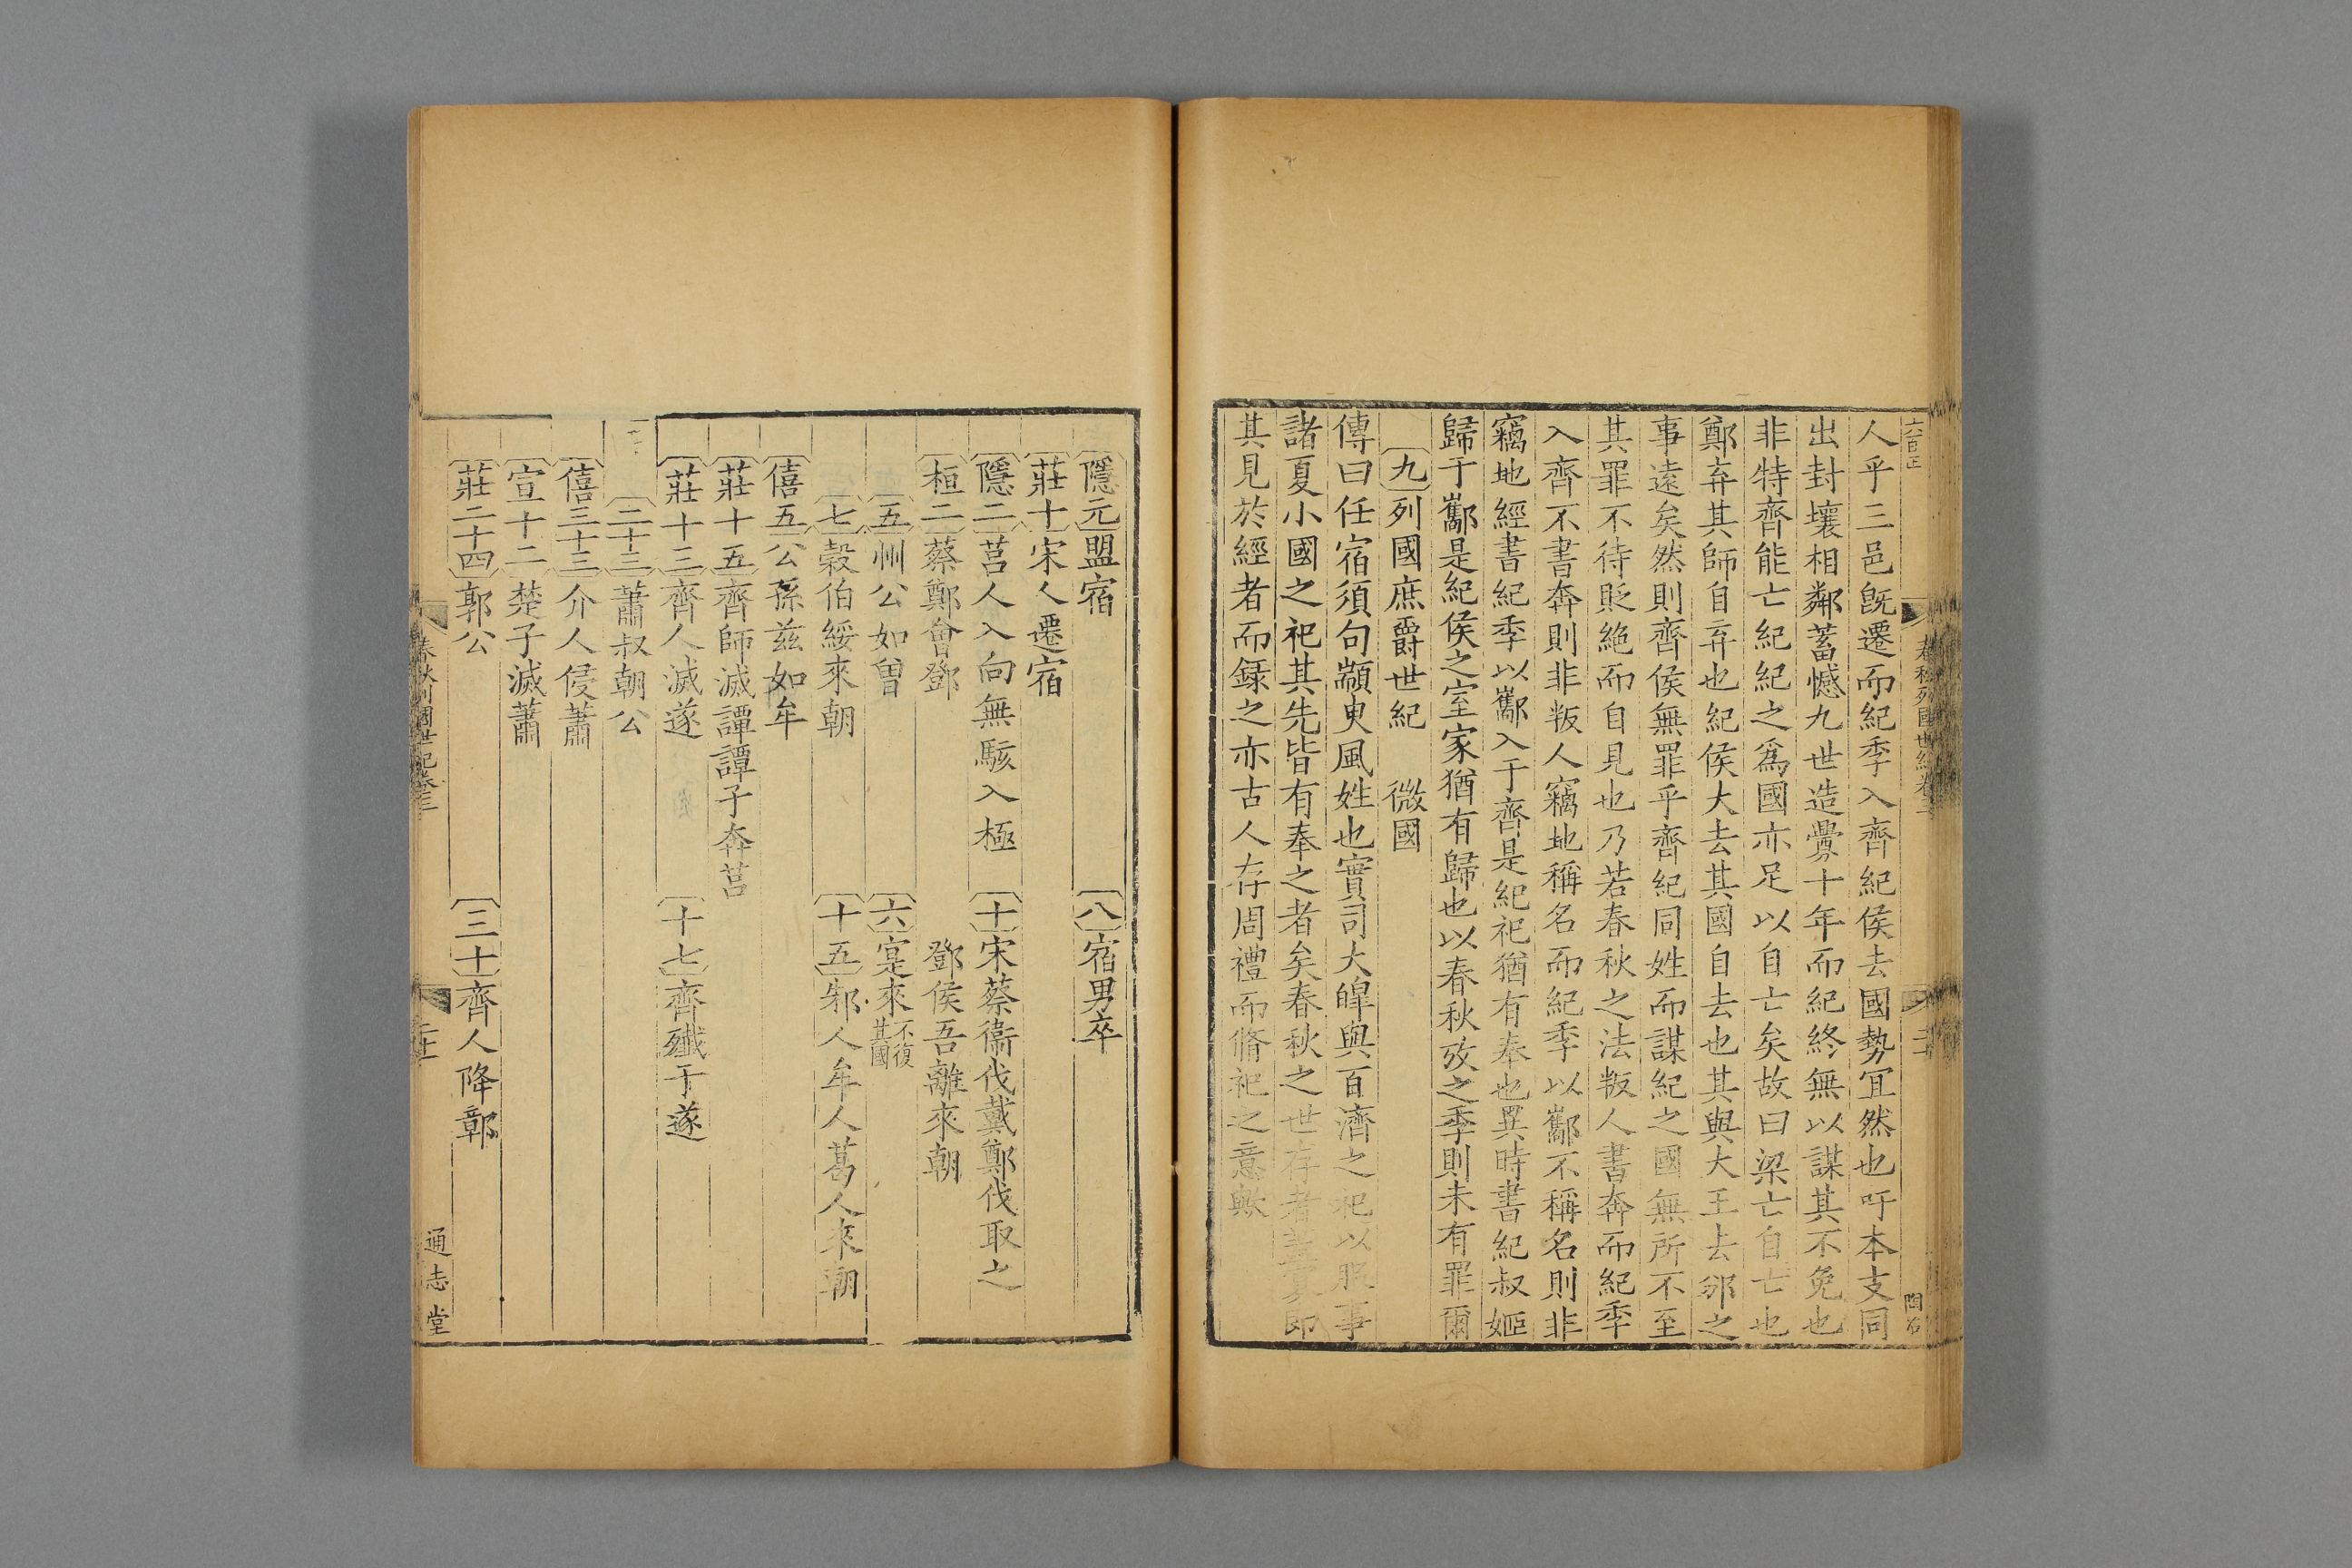 人乎三邑旣遷而紀季入齊紀侯去國勢宜然也吁本支同
出封壤相鄰蓄憾九世造釁十年而紀終無以謀其不免也
非特齊能亡紀紀之爲國亦足以自亡矣故曰梁亡自亡也
鄭弃其師自弃也紀侯大去其國自去也其與大王去邠之
事遠矣然則齊侯無罪乎齊紀同姓而謀紀之國無所不至
其罪不待貶絶而自見也乃若春秋之法叛人書奔而紀季
入齊不書奔則非叛人竊地稱名而紀季以酅不稱名則非
竊地經書紀季以酅入于齊是紀祀猶有奉也異時書紀叔姬
歸于酅是紀侯之室家猶有歸也以春秋攷之季則未有罪爾
九列國庶爵世紀 微國
傳曰任宿須句顓臾風姓也實司大皥與百濟之祀以服事
諸夏小國之祀其先皆有奉之者矣春秋之世存者即
其見於經者而録之亦古人存周禮而脩祀之意歟
隱元盟宿 八宿男卒
莊十宋人遷宿
隱二莒人入向無駭入極 十宋蔡衛伐戴鄭伐取之
桓二蔡鄭會鄧 鄧侯吾離來朝
五州公如曹 六寔來不復其國
七穀伯綏來朝 十五邾人牟人葛人來朝
僖五公孫茲如牟
莊十五齊師滅譚譚子奔莒
莊十三齊人滅遂 十七齊殲于遂
二十三蕭叔朝公
僖三十介人侵蕭
宣十二楚子滅蕭
莊二十四郭公 三十齊人降鄣
春秋列國世紀卷三
通志堂